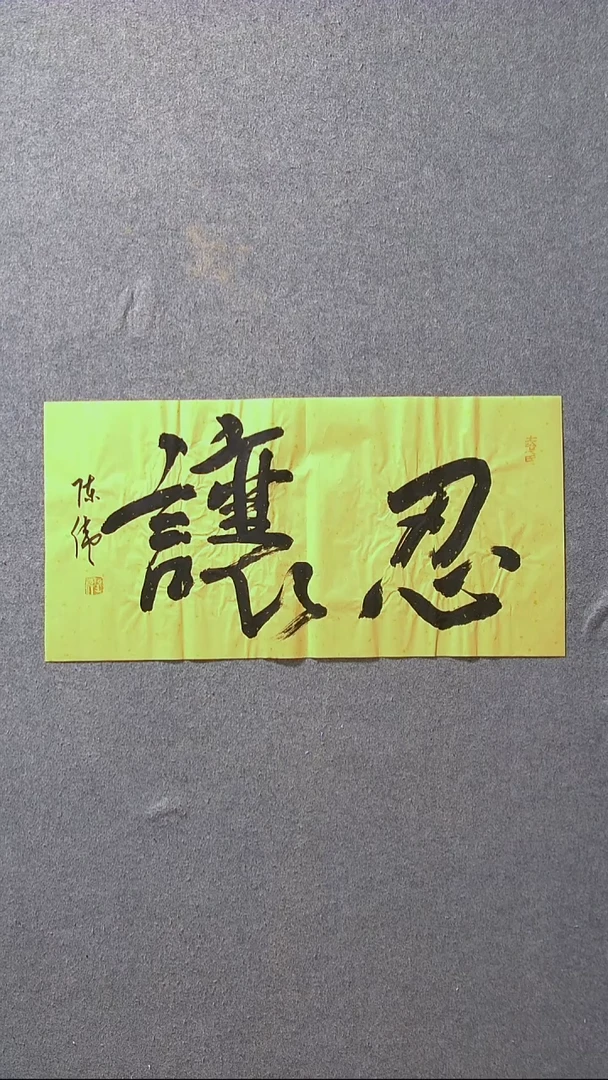 忍讓
陈伟